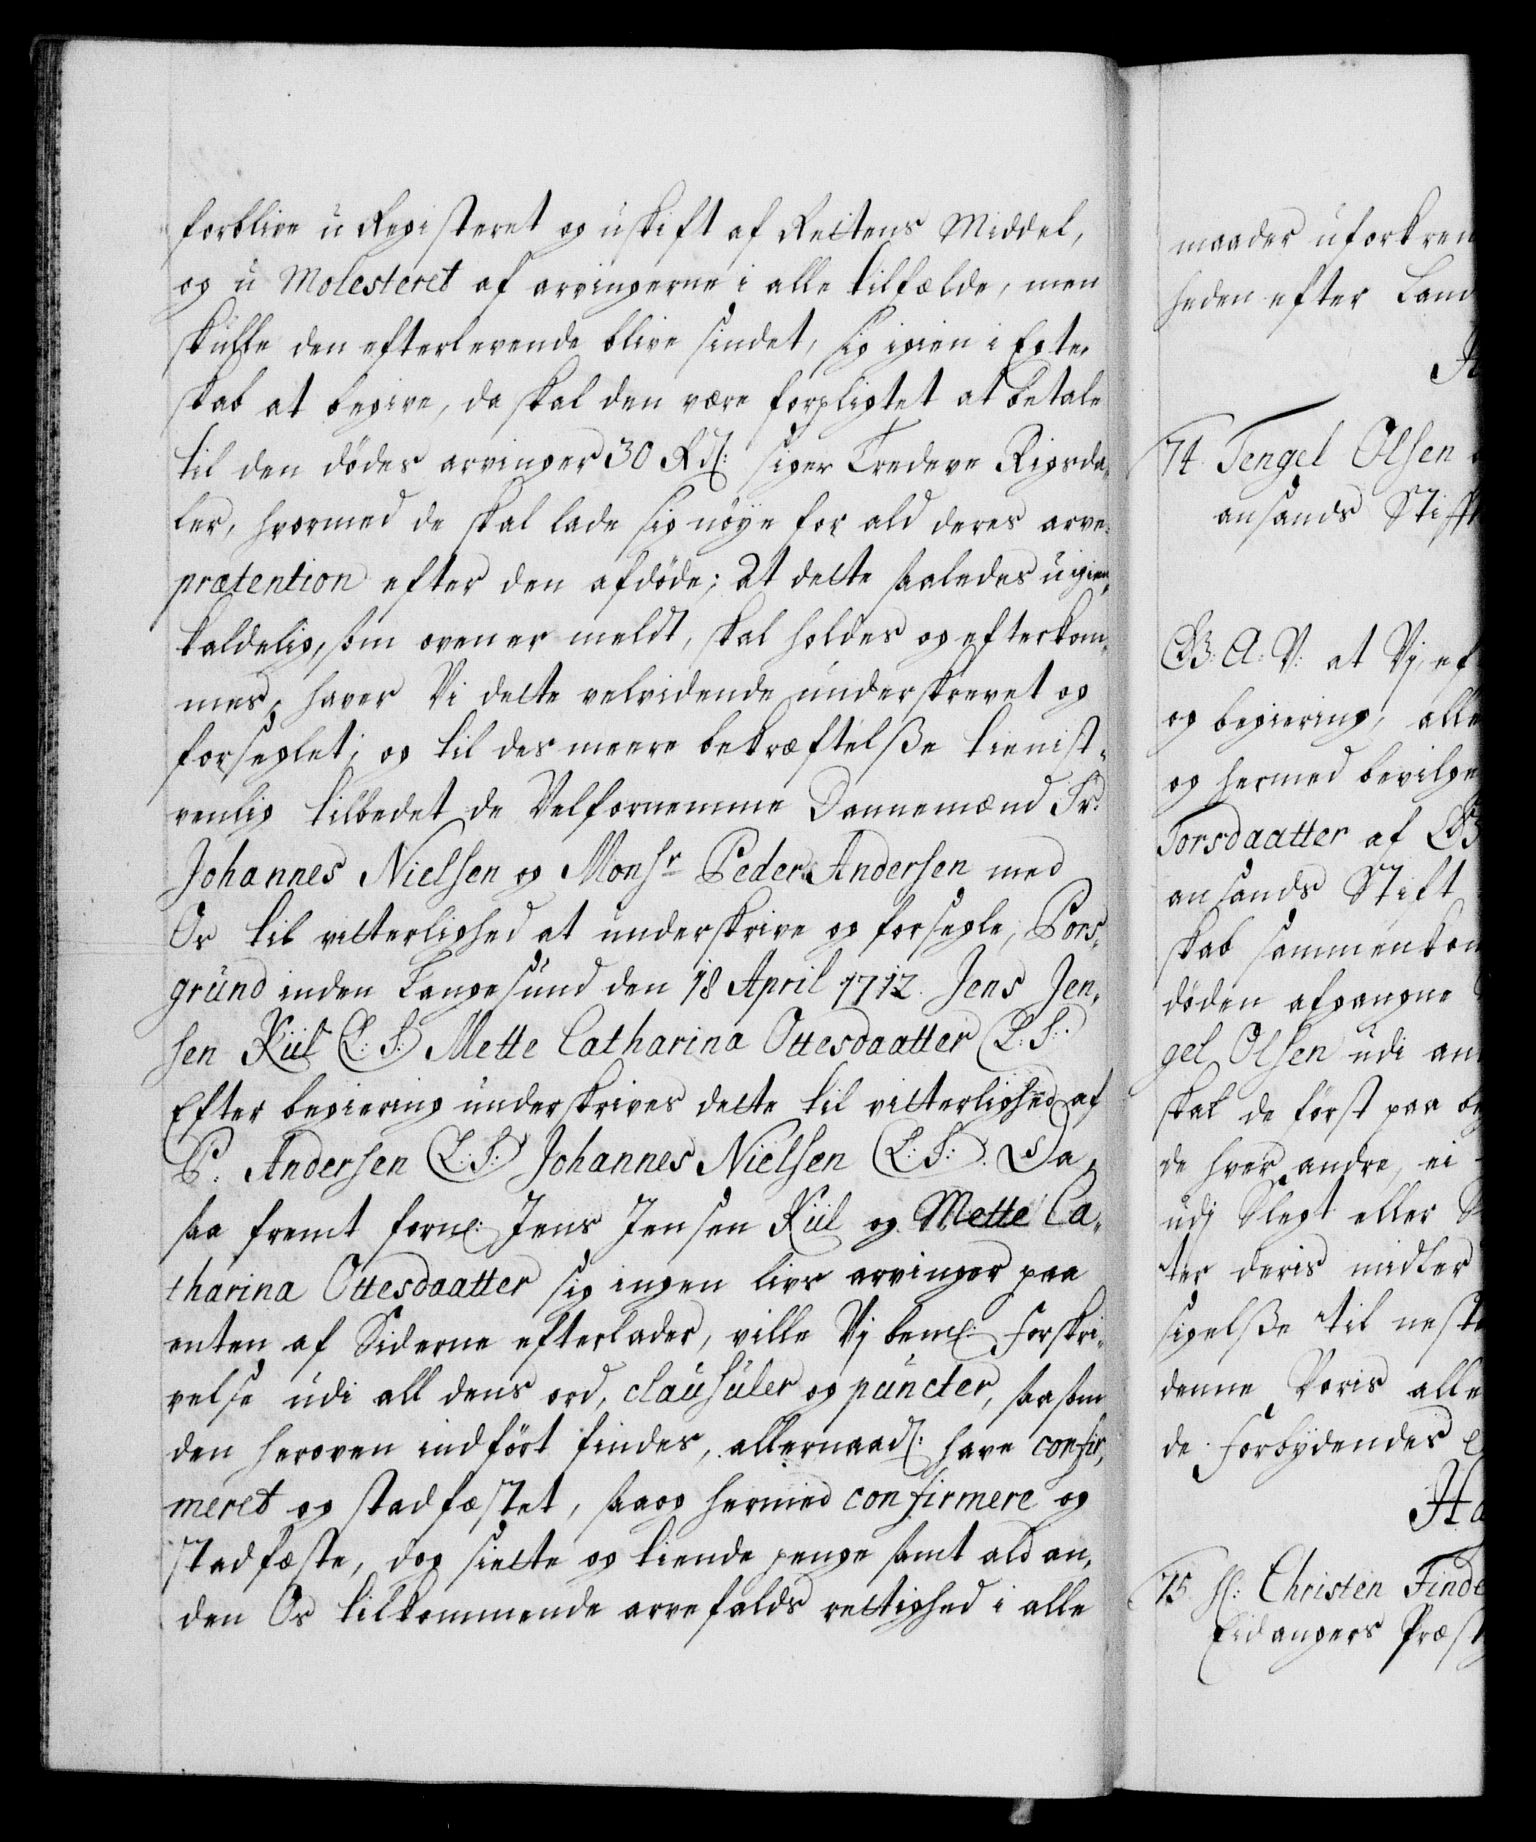 forblive u Registeret og uskift af Rettens Middel,
og u Molesteret af arvingerne i alle tilfælde, men
skulle den efterlevende blive sindet, sig igien i Egte-
skab at begive, da skal den være forpligtet at betale
til den dödes arvinger 30 Rd: siger Tredeve Rigsda-
ler, hvormed de skal lade sig nöye for ald deres arve-
prætention efter den afdöde; At dette saaledes uigien-
kaldelig, som oven er meldt, skal holdes og efterkom-
mes, haver Vi dette velvidende underskrevet og
forseglet; og til des meere bekræftelße tienist-
venlig tilbedet de Velfornemme Dannemænd Sr.
Johannes Nielsen og Monsr Peder Andersen med
Os til vitterlighed at underskrive og forsegle, Pors-
grund inden Langesund den 18 April 1712. Jens Jen-
sen Kiil (L:S:) Mette Catharina Ottesdaatter (L:S:)
Efter begiering underskrives dette til vitterlighed af
P: Andersen (L:S:) Johannes Nielsen (L:S:). Da,
saa fremt forne: Jens Jensen Kiil og Mette Ca-
tharina Ottesdaatter sig ingen livs arvinger paa
enten af Siderne efterlader, ville Vj bemte: forskri-
velse udi all dens ord, clausuler og puncter, saasom
den heroven indfört findes, allernaad: have confir-
meret og stadfæstet, saaog hermed confirmere og
stadfæste, dog siette og tiende penge samt ald an-
den Os tilkommende arvefalds rettighed i alle
maader uforkren
heden efter Land
74 Tengel Olsen
ansands Stift
G: A: V: at Vj, ef
og begiering, alle
og hermed bevilge
Torsdaatter af
ansands Stift
skab sammenkom
döden afgangne
gel Olsen udi an
skal de först paa
de hver andre, ei
udj Slegt eller S
ter deris midler
sigelße til neste
denne Voris alle
de. Forbydendes
Ha
75 H: Christen Finde
Eidangers Præst